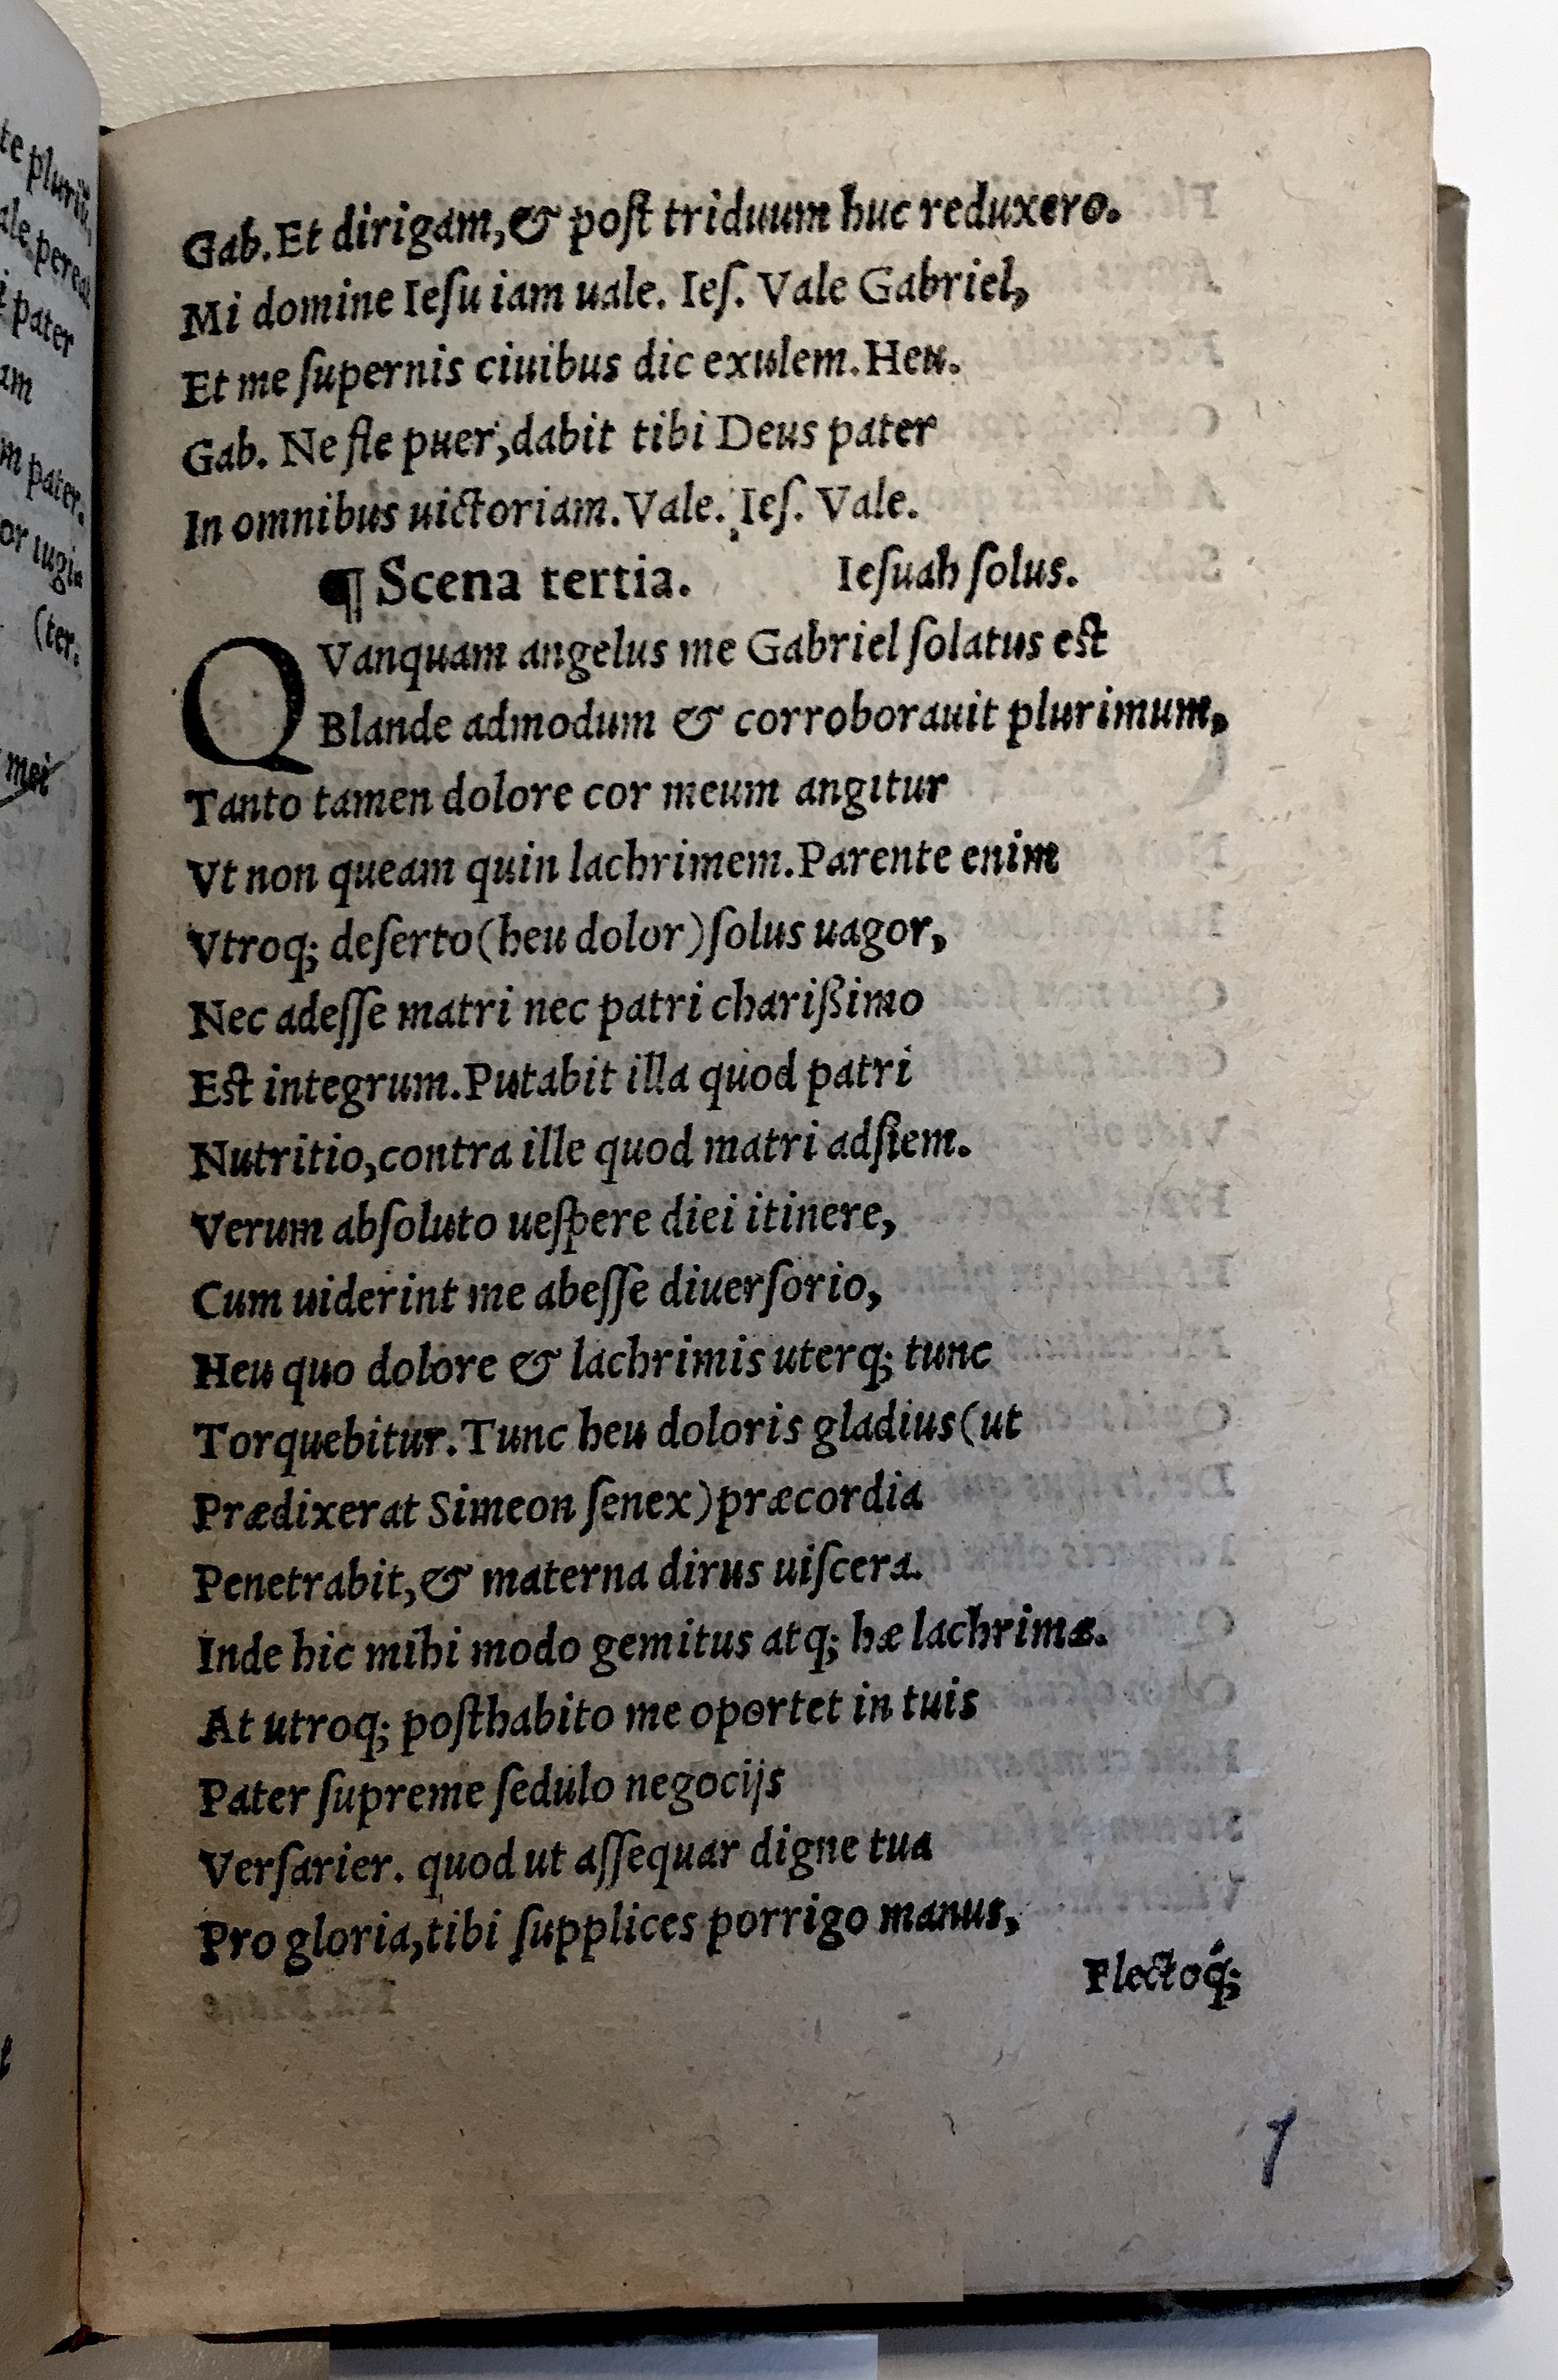 te pluriũ,
ale pereat
i pater
am
m pater.
or iugi.
(ter.
mei
Gab. Et dirigam, & poſt triduum huc reduxero.
Mi domine Ieſu iam uale. Ieſ. Vale Gabriel,
Et me ſupernis ciuibus dic exulem. Heu.
Gab. Ne fle puer, dabit tibi Deus pater
In omnibus uictoriam. Vale. Ieſ. Vale.
¶ Scena tertia. Ieſuah ſolus.
QVanquam angelus me Gabriel ſolatus eſt
Blande admodum & corroborauit plurimum,
Tanto tamen dolore cor meum angitur
Vt non queam quin lachrimem. Parente enim
Vtroq; deſerto (heu dolor) ſolus uagor,
Nec adeſſe matri nec patri charißimo
Eſt integrum. Putabit illa quod patri
Nutritio, contra ille quod matri adſiem.
Verum abſoluto ueſpere diei itinere,
Cum uiderint me abeſſe diuerſorio,
Heu quo dolore & lachrimis uterq; tunc
Torquebitur. Tunc heu doloris gladius (ut
Prædixerat Simeon ſenex) præcordia
Penetrabit, & materna dirus uiſcera.
Inde hic mihi modo gemitus atq; hæ lachrimæ.
At utroq; poſthabito me oportet in tuis
Pater ſupreme ſedulo negocijs
Verſarier. quod ut aſſequar digne tua
Pro gloria, tibi ſupplices porrigo manus,
Flectoq́;
1